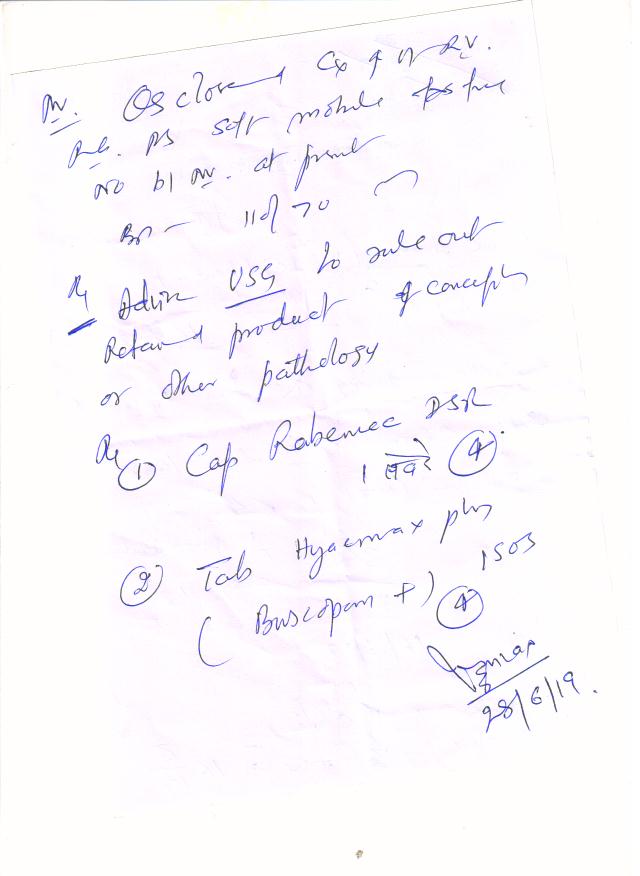 PV. Os closed Cx ↑ ut RV.
soft mobile free
NO bl PV. at present
BP - 110/70
Rx Advise USG to rule out
Retained product of conception
or other pathology
Rx ① Cap Rabemec DSR
1 सवेरे ④
② Tab Hyacmax plus
(Buscopan +) 1 SOS
④
28/6/19.